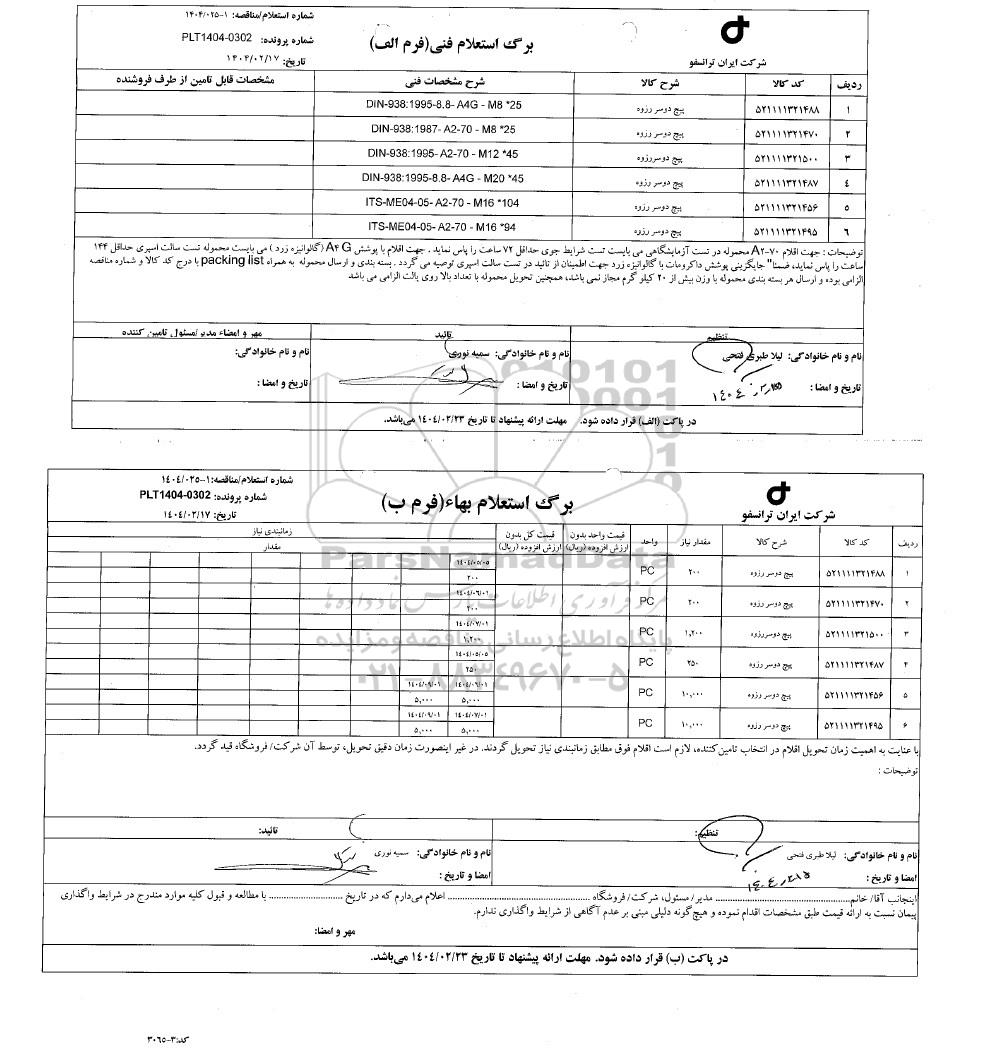 شماره استعلام/مناقصه: ۱-۱۴۰۴/۰۲۵
برگ استعلام فنی(فرم الف)
شماره پرونده: PLT1404-0302
شرکت ایران ترانسفو
تاریخ: ۱۴۰۴/۰۲/۱۷
ردیف کد کالا شرح کالا شرح مشخصات فنی مشخصات قابل تامین از طرف فروشنده
۱ ۵۲۱۱۱۱۳۲۱۴۸۸ پیچ دوسر رزوه DIN-938:1995-8.8- A4G - M8 *25
۲ ۵۲۱۱۱۱۳۲۱۴۷۰ پیچ دوسر رزوه DIN-938:1987- A2-70 - M8 *25
۳ ۵۲۱۱۱۱۳۲۱۵۰۰ پیچ دوسررزوه DIN-938:1995- A2-70 - M12 *45
٤ ۵۲۱۱۱۱۳۲۱۴۸۷ پیچ دوسر رزوه DIN-938:1995-8.8- A4G - M20 *45
۵ ۵۲۱۱۱۱۳۲۱۴۵۶ پیچ دوسر رزوه ITS-ME04-05- A2-70 - M16 *104
٦ ۵۲۱۱۱۱۳۲۱۴۹۵ پیچ دوسر رزوه ITS-ME04-05- A2-70 - M16 *94
توضیحات : جهت اقلام A۲-۷۰ محموله در تست آزمایشگاهی می بایست تست شرایط جوی حداقل ۷۲ ساعت را پاس نماید . جهت اقلام با پوشش A۴ G (گالوانیزه زرد ) می بایست محموله تست سالت اسپری حداقل ۱۴۴
ساعت را پاس نماید، ضمنا" جایگزینی پوشش داکرومات با گالوانیزه زرد جهت اطمینان از تائید در تست سالت اسپری توصیه می گردد . بسته بندی و ارسال محموله به همراه packing list با درج کد کالا و شماره مناقصه
الزامی بوده و ارسال هر بسته بندی محموله با وزن بیش از ۲۰ کیلو گرم مجاز نمی باشد، همچنین تحویل محموله با تعداد بالا روی پالت الزامی می باشد
تنظیم تائید مهر و امضاء مدیر/مسئول تامین کننده
نام و نام خانوادگی: لیلا طبری فتحی نام و نام خانوادگی: سمیه نوری نام و نام خانوادگی:
تاریخ و امضا : تاریخ و امضا : تاریخ و امضا :
در پاکت (الف) قرار داده شود. مهلت ارائه پیشنهاد تا تاریخ ۱۴۰۴/۰۲/۲۳ می‌باشد.
شماره استعلام/مناقصه:۱-۱۴۰۴/۰۲۵
برگ استعلام بهاء(فرم ب)
شماره پرونده: PLT1404-0302
شرکت ایران ترانسفو
تاریخ: ۱۴۰۴/۰۲/۱۷
ردیف کد کالا شرح کالا مقدار نیاز واحد قیمت واحد بدون ارزش افزوده (ریال) قیمت کل بدون ارزش افزوده (ریال) زمانبندی نیاز
مقدار
۱ ۵۲۱۱۱۱۳۲۱۴۸۸ پیچ دوسر رزوه ۲۰۰ PC ۱۴۰۴/۰۵/۰۵
۲۰۰
۲ ۵۲۱۱۱۱۳۲۱۴۷۰ پیچ دوسر رزوه ۲۰۰ PC ۱۴۰۴/۰۶/۰۱
۲۰۰
۳ ۵۲۱۱۱۱۳۲۱۵۰۰ پیچ دوسررزوه ۱,۲۰۰ PC ۱۴۰۴/۰۷/۰۱
۱,۲۰۰
۴ ۵۲۱۱۱۱۳۲۱۴۸۷ پیچ دوسر رزوه ۲۵۰ PC ۱۴۰۴/۰۵/۰۵
۲۵۰
۵ ۵۲۱۱۱۱۳۲۱۴۵۶ پیچ دوسر رزوه ۱۰,۰۰۰ PC ۱۴۰۴/۰۶/۰۱ ۱۴۰۴/۰۹/۰۱
۵,۰۰۰ ۵,۰۰۰
۶ ۵۲۱۱۱۱۳۲۱۴۹۵ پیچ دوسر رزوه ۱۰,۰۰۰ PC ۱۴۰۴/۰۷/۰۱ ۱۴۰۴/۰۹/۰۱
۵,۰۰۰ ۵,۰۰۰
ParsNamadData
مرکز فرآوری اطلاعات پارس نماد داده‌ها
پایگاه اطلاع رسانی مناقصه و مزایده
۰۲۱-۸۸۳۴۹۶۷۰-۵
با عنایت به اهمیت زمان تحویل اقلام در انتخاب تامین‌کننده، لازم است اقلام فوق مطابق زمانبندی نیاز تحویل گردند. در غیر اینصورت زمان دقیق تحویل، توسط آن شرکت/ فروشگاه قید گردد.
توضیحات :
تنظیم: تائید:
نام و نام خانوادگی: لیلا طبری فتحی نام و نام خانوادگی: سمیه نوری
امضا و تاریخ : امضا و تاریخ :
اینجانب آقا/ خانم........ مدیر/ مسئول، شرکت/ فروشگاه ........ اعلام می‌دارم که در تاریخ ........ با مطالعه و قبول کلیه موارد مندرج در شرایط واگذاری
پیمان نسبت به ارائه قیمت طبق مشخصات اقدام نموده و هیچ‌گونه دلیلی مبنی بر عدم آگاهی از شرایط واگذاری ندارم.
مهر و امضا:
در پاکت (ب) قرار داده شود. مهلت ارائه پیشنهاد تا تاریخ ۱۴۰۴/۰۲/۲۳ می‌باشد.
کد:۳-۳۰۶۵